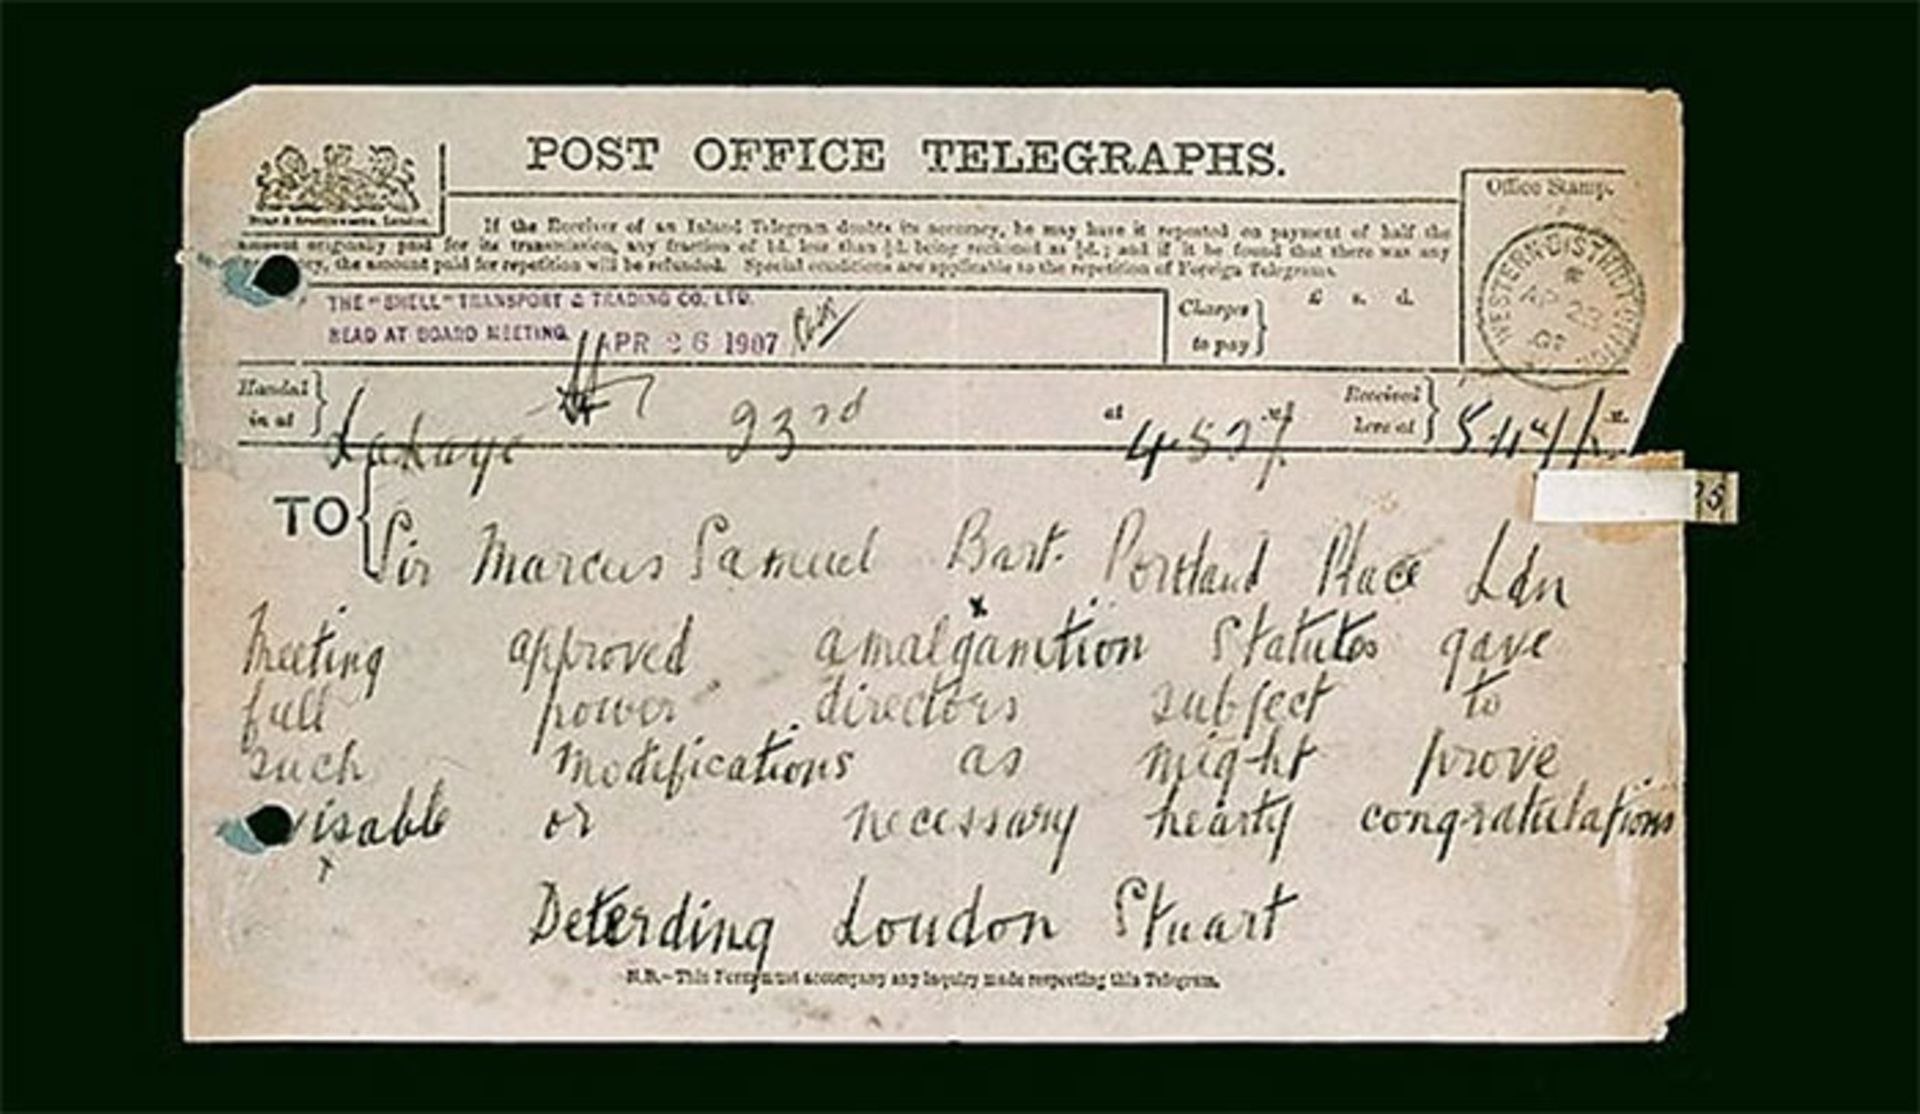 POST OFFICE TELEGRAPHS.
Office Stamp.
If the Receiver of an Inland Telegram doubts its accuracy, he may have it repeated on payment of half the
amount originally paid for its transmission, any fraction of 1d. less than ½d. being reckoned as ½d.; and if it be found that there was any
the amount paid for repetition will be refunded. Special conditions are applicable to the repetition of Foreign Telegrams.
THE "SHELL" TRANSPORT & TRADING CO. LTD.
READ AT BOARD MEETING. APR 26 1907
Charges to pay } £ s. d.
WESTERN DISTRICT OFFICE
Handed in at } Lahaye 23rd at 4.57 Received here at }
TO { Sir Marcus Samuel Bart. Portland Place Ldn
Meeting approved amalgamtion Statutes gave
full power directors subject to
such modifications as might prove
visable or necessary hearty congratulations
Deterding Loudon Stuart
N.B.—This Form must accompany any inquiry made respecting this Telegram.